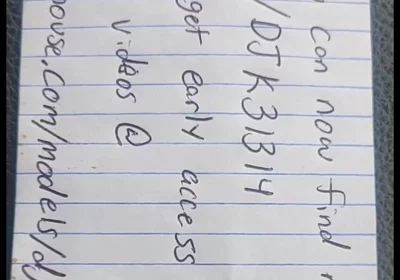 can now find
/DJK31314
get early access
videos @
ouse.com/models/dj